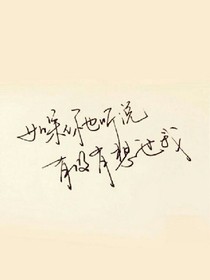 如果你也听说
有没有想过我